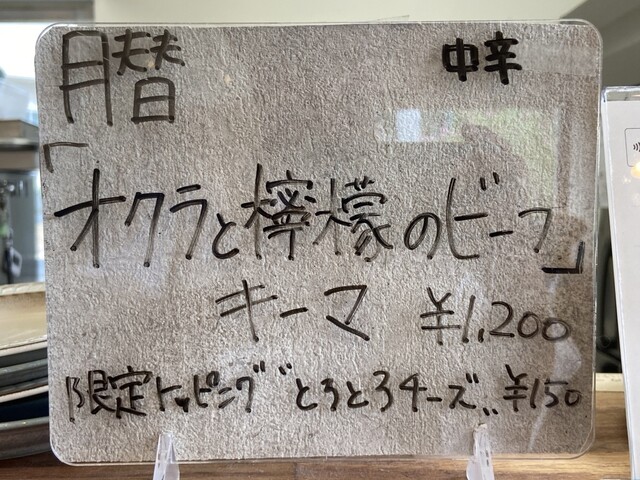 月替 中辛
「オクラと檸檬のビーフ」
キーマ ¥1,200
限定トッピング "とろとろチーズ" ¥150